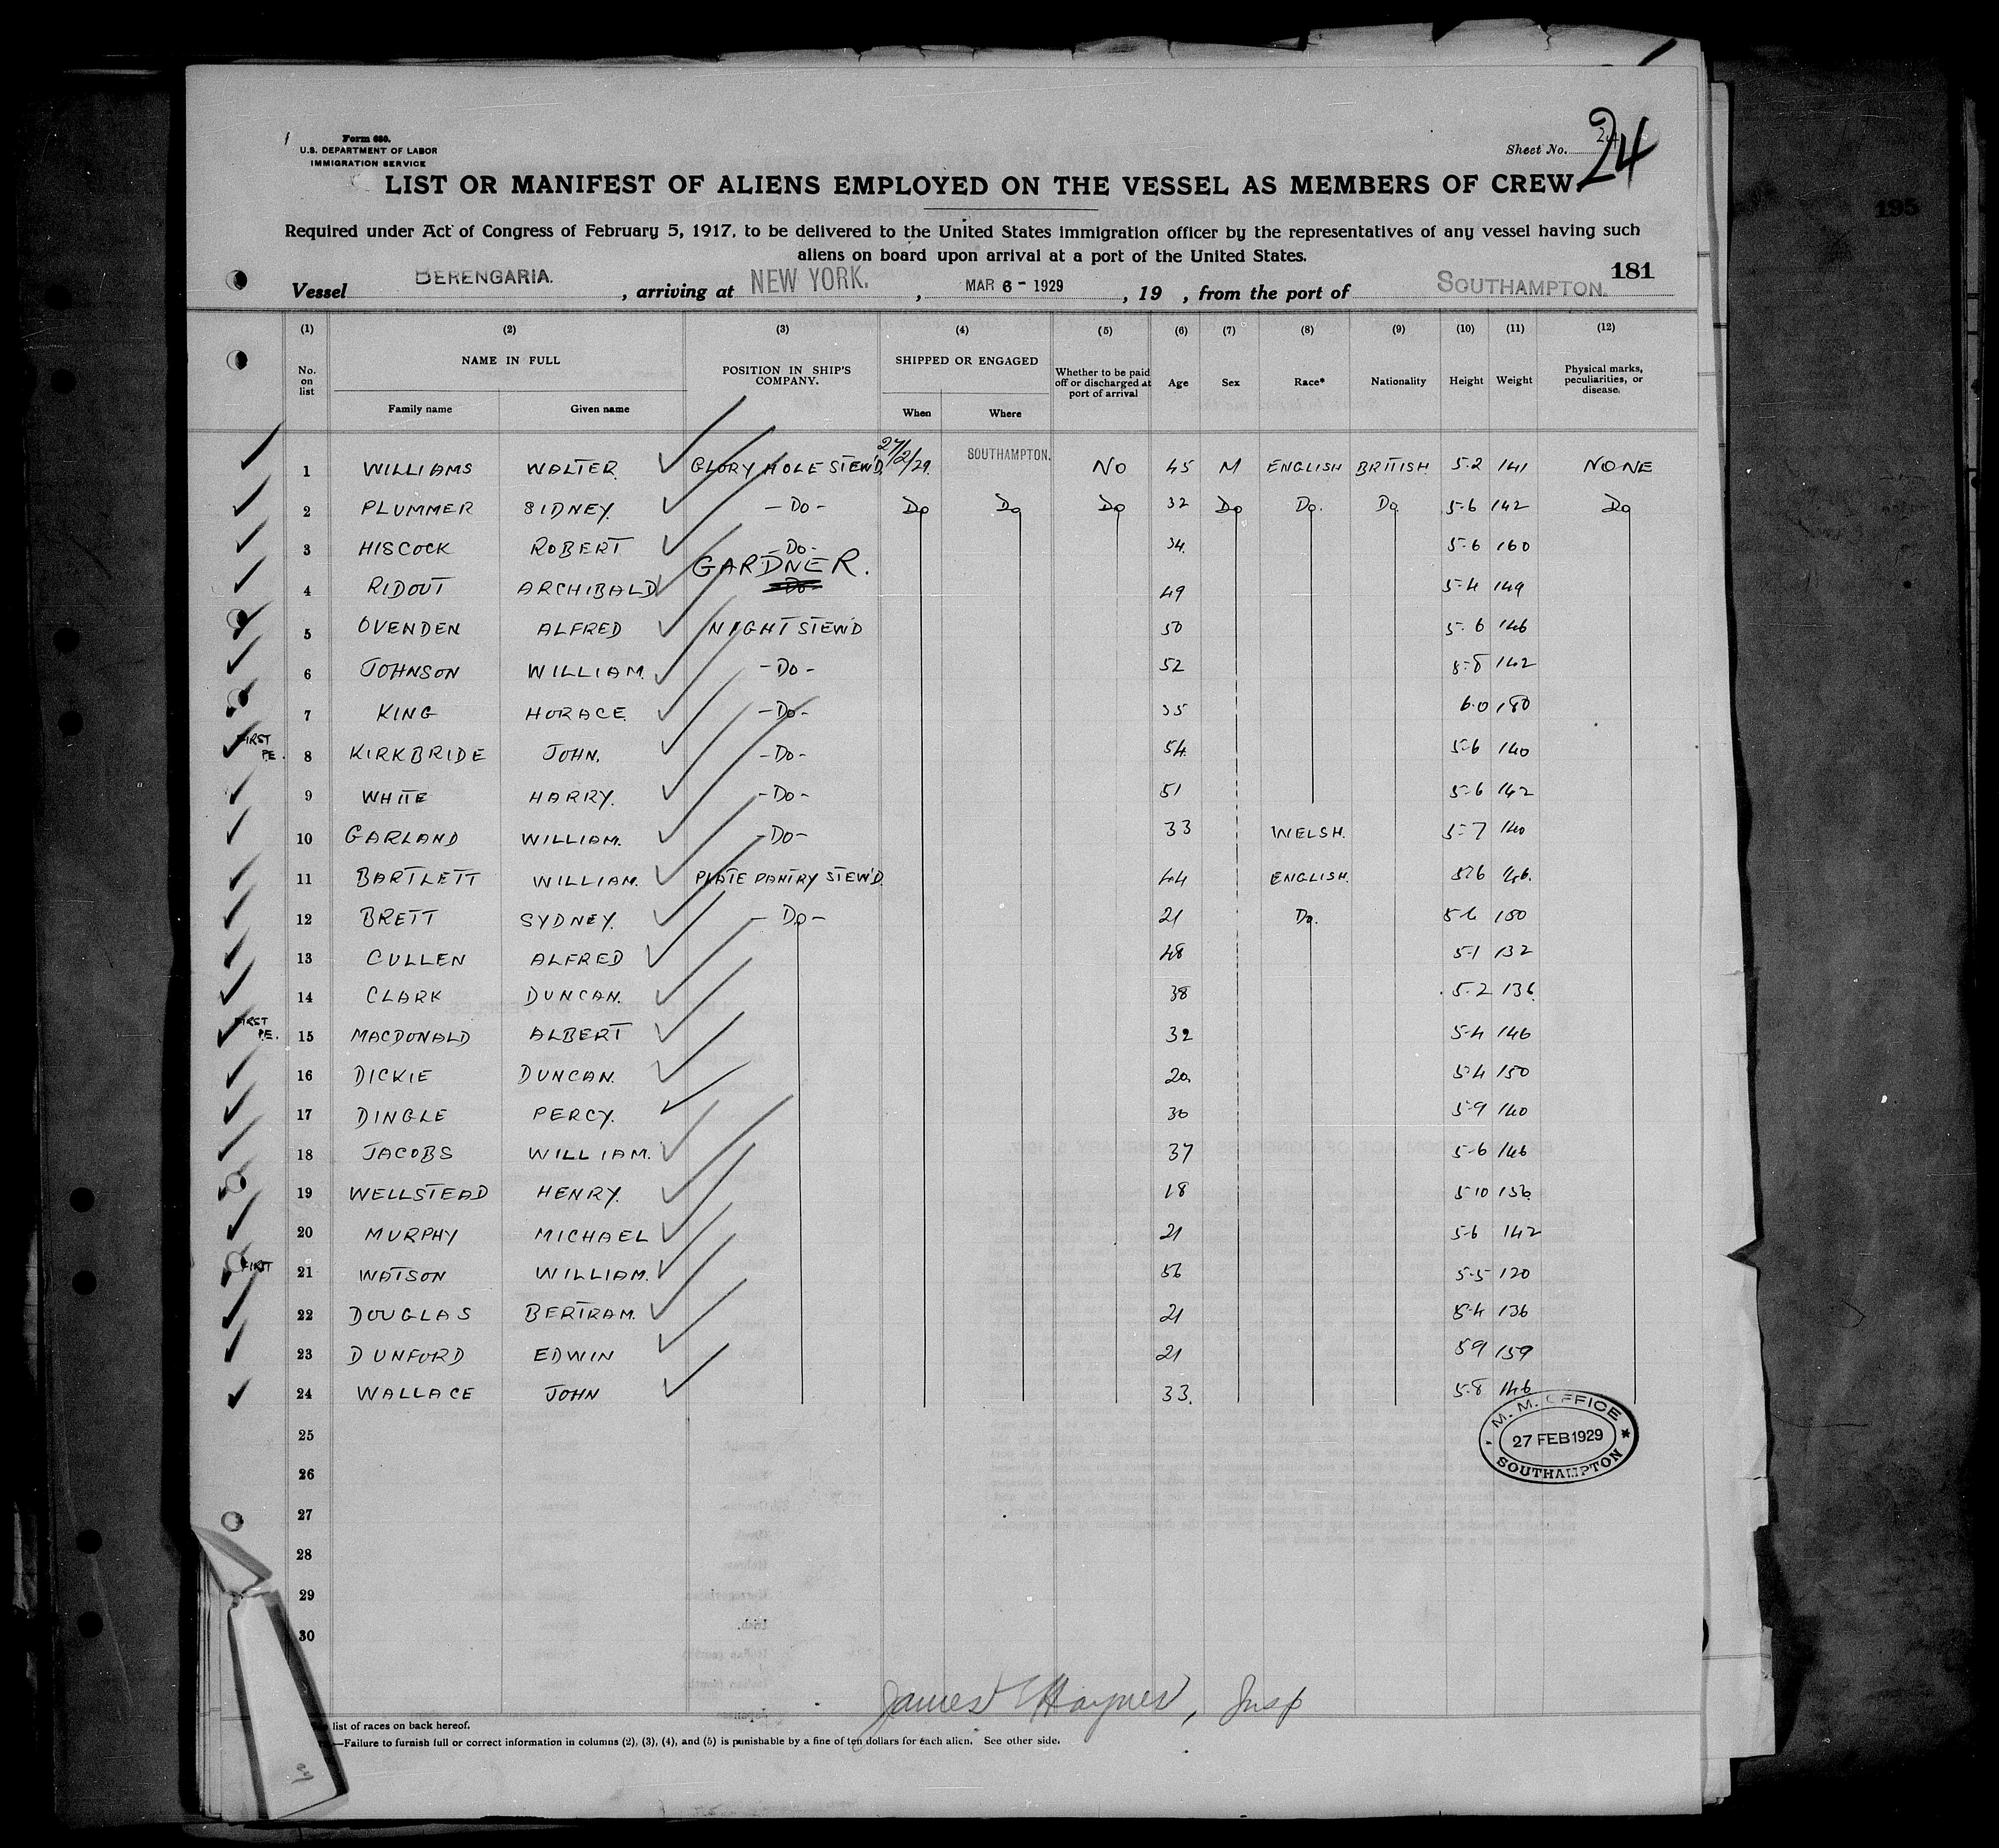 Form 680.
U.S. DEPARTMENT OF LABOR
IMMIGRATION SERVICE
Sheet No. 24
24
LIST OR MANIFEST OF ALIENS EMPLOYED ON THE VESSEL AS MEMBERS OF CREW
Required under Act of Congress of February 5, 1917, to be delivered to the United States immigration officer by the representatives of any vessel having such
aliens on board upon arrival at a port of the United States.
195
181
Vessel BERENGARIA. , arriving at NEW YORK. , MAR 6 - 1929 , 19 , from the port of SOUTHAMPTON.
(1) (2) (3) (4) (5) (6) (7) (8) (9) (10) (11) (12)
No. on list NAME IN FULL POSITION IN SHIP'S COMPANY. SHIPPED OR ENGAGED Whether to be paid off or discharged at port of arrival Age Sex Race* Nationality Height Weight Physical marks, peculiarities, or disease.
Family name Given name When Where
1 WILLIAMS WALTER. GLORY HOLE STEW'D 27/2/29. SOUTHAMPTON. NO 45 M ENGLISH BRITISH. 5-2 141 NONE
2 PLUMMER SIDNEY. - Do - Do Do Do 32 Do Do. Do 5-6 142 Do
3 HISCOCK ROBERT - Do - 34. 5-6 160
4 RIDOUT ARCHIBALD GARDNER. Do 49 5-4 149
5 OVENDEN ALFRED NIGHT STEW'D 50 5-6 146
6 JOHNSON WILLIAM. - Do - 52 5-8 142
7 KING HORACE. - Do - 35 6-0 180
FIRST P.E. 8 KIRKBRIDE JOHN. - Do - 54. 5-6 140
9 WHITE HARRY. - Do - 51 5-6 142
10 GARLAND WILLIAM. - Do - 33 WELSH. 5-7 140
11 BARTLETT WILLIAM. PLATE PANTRY STEW'D. 44 ENGLISH. 5-6 146.
12 BRETT SYDNEY. - Do - 21 Do. 5-6 150
13 CULLEN ALFRED 48 5-1 132
14 CLARK DUNCAN. 38 5-2 136.
FIRST P.E. 15 MACDONALD ALBERT 32 5-4 146
16 DICKIE DUNCAN. 20. 5-4 150
17 DINGLE PERCY. 30 5-9 140
18 JACOBS WILLIAM. 37 5-6 146
19 WELLSTEAD HENRY. 18 5-10 136.
20 MURPHY MICHAEL 21 5-6 142
FIRST 21 WATSON WILLIAM. 56 5-5 120
22 DOUGLAS BERTRAM. 21 5-4 136
23 DUNFORD EDWIN 21 5-9 159
24 WALLACE JOHN 33. 5-8 146
25
26
27
28
29
30
I.M.M. OFFICE
27 FEB 1929
SOUTHAMPTON
James Haynes, Insp
list of races on back hereof.
—Failure to furnish full or correct information in columns (2), (3), (4), and (5) is punishable by a fine of ten dollars for each alien. See other side.